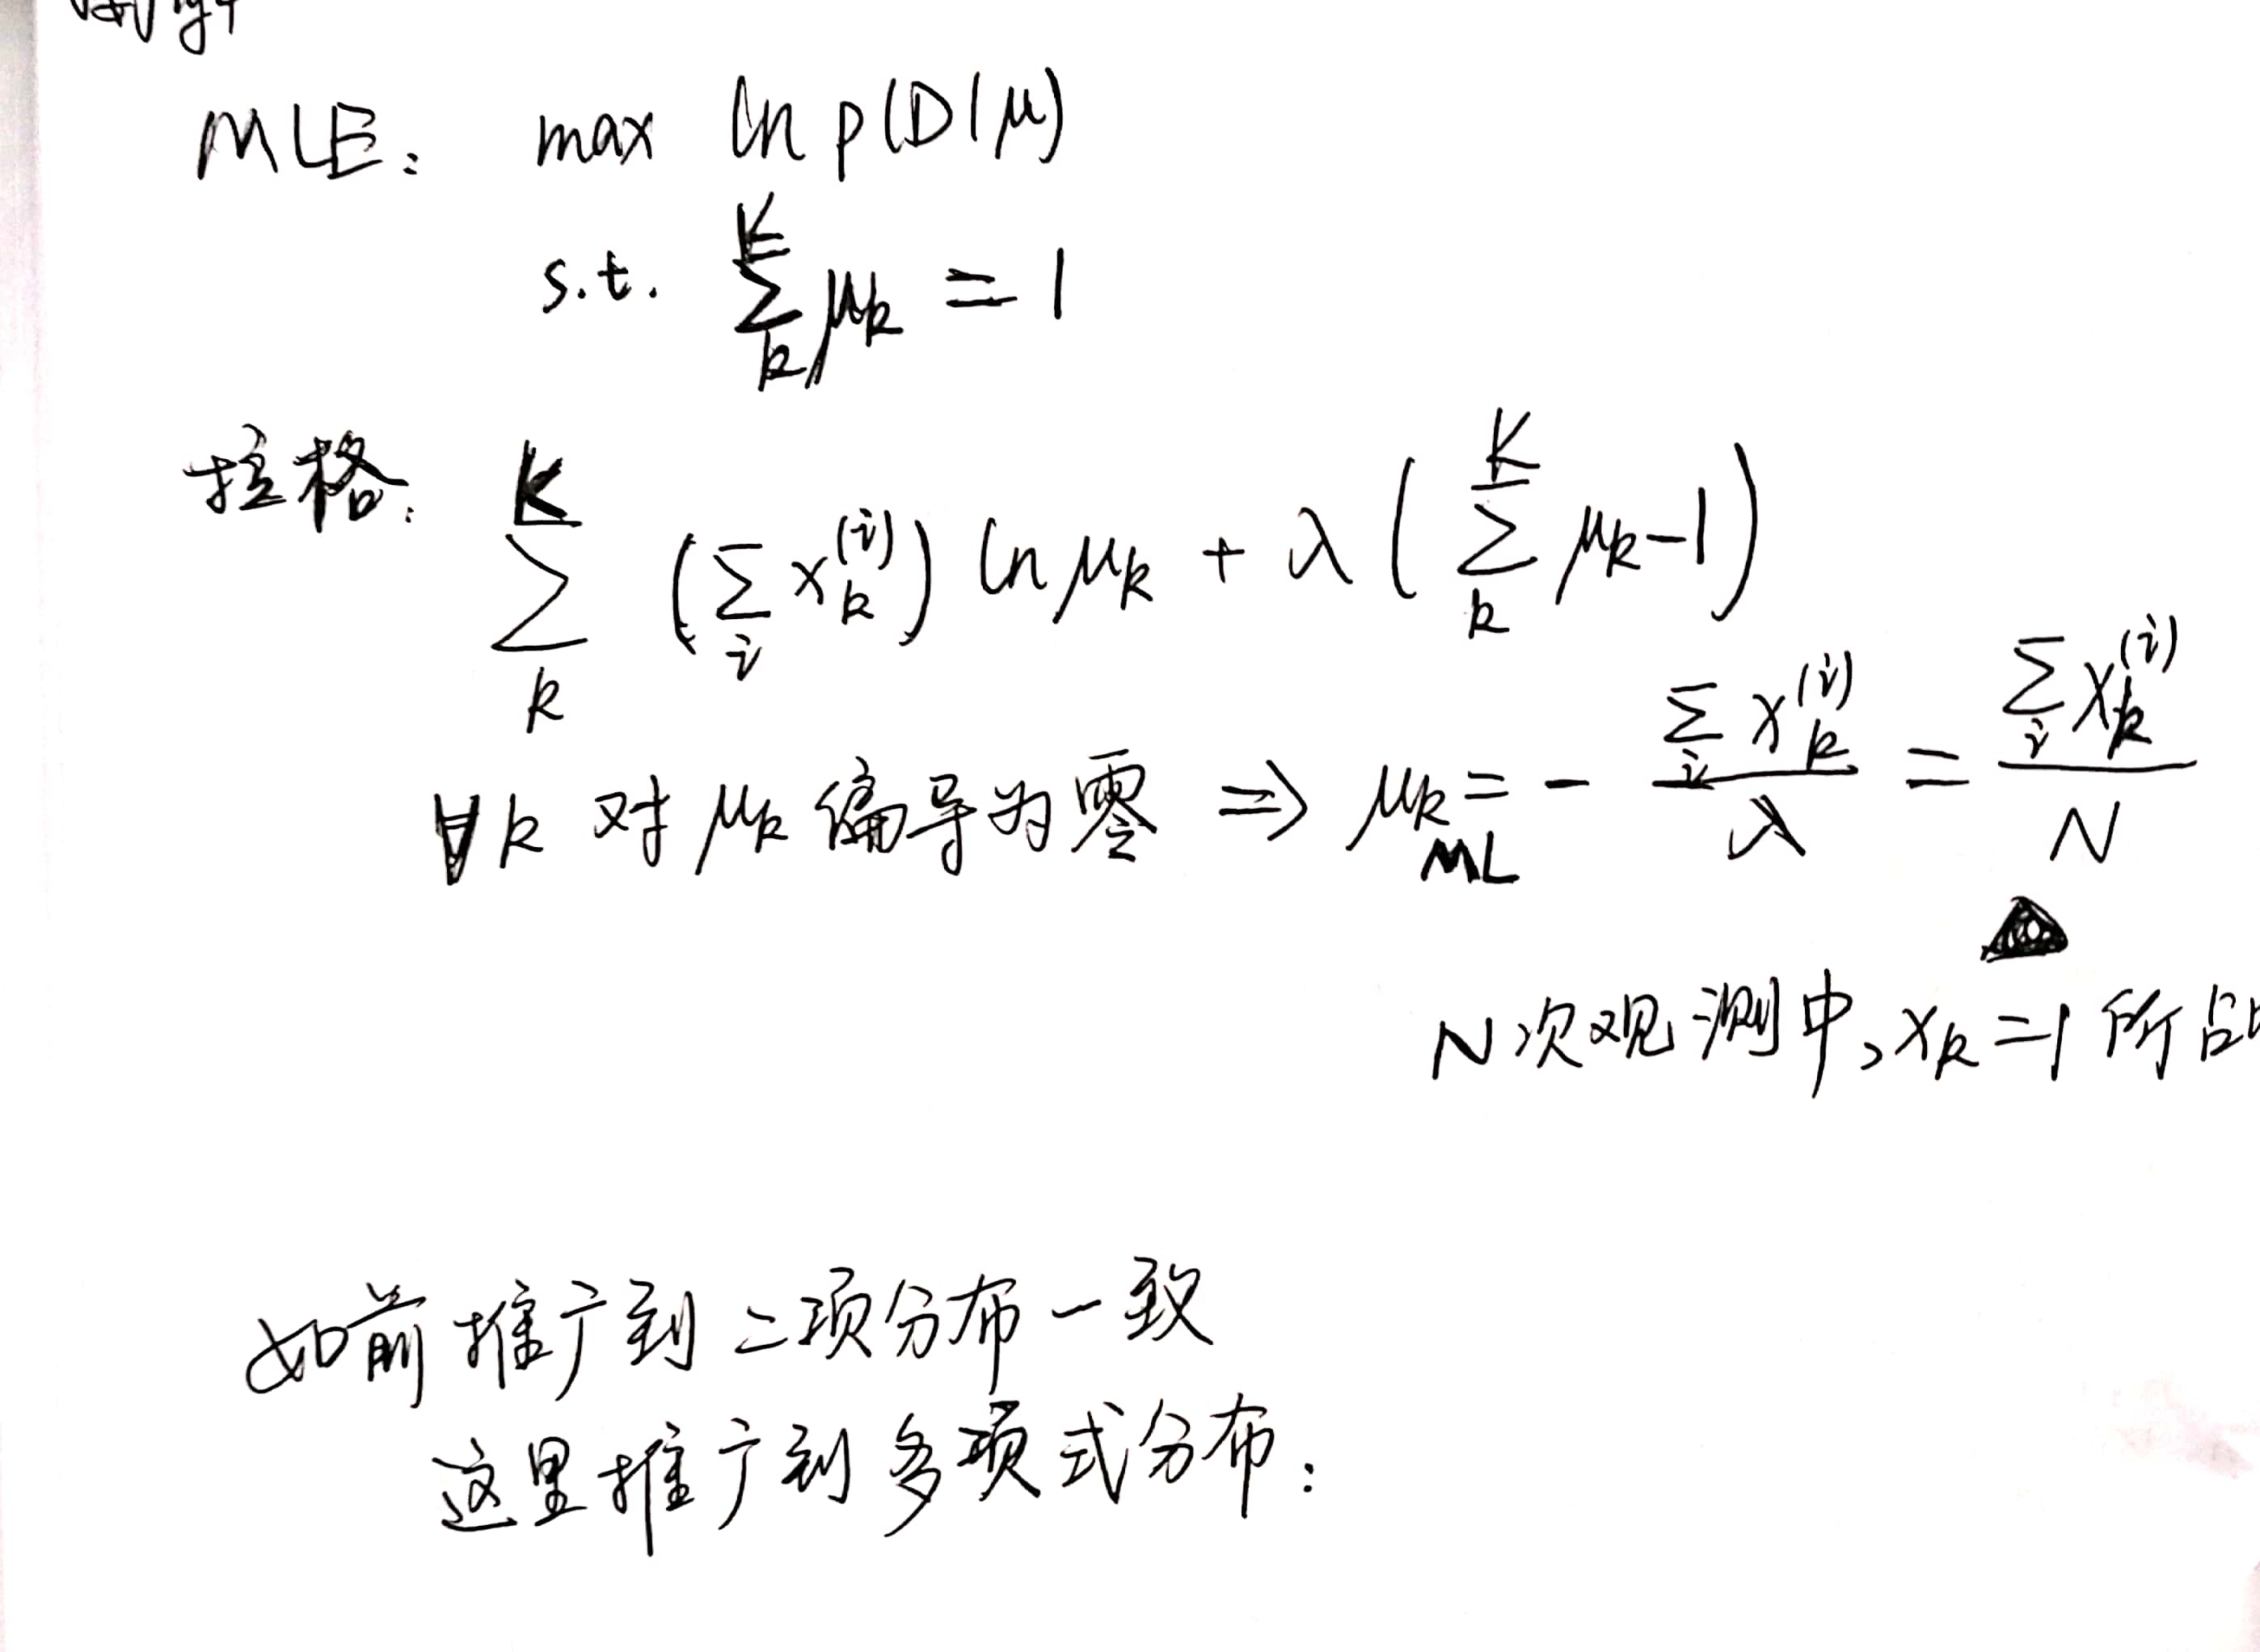 MLE: max ln p(D|μ)
s.t. ∑_k^K μ_k = 1
拉格: ∑_k^K (∑_i x_k^(i)) ln μ_k + λ (∑_k^K μ_k - 1)
∀k 对 μ_k 偏导为零 ⇒ μ_k ML = - ∑_i x_k^(i) / λ = ∑_i x_k^(i) / N
N次观测中, x_k = 1 所占
如前推广到二项分布一致
这里推广到多项式分布: